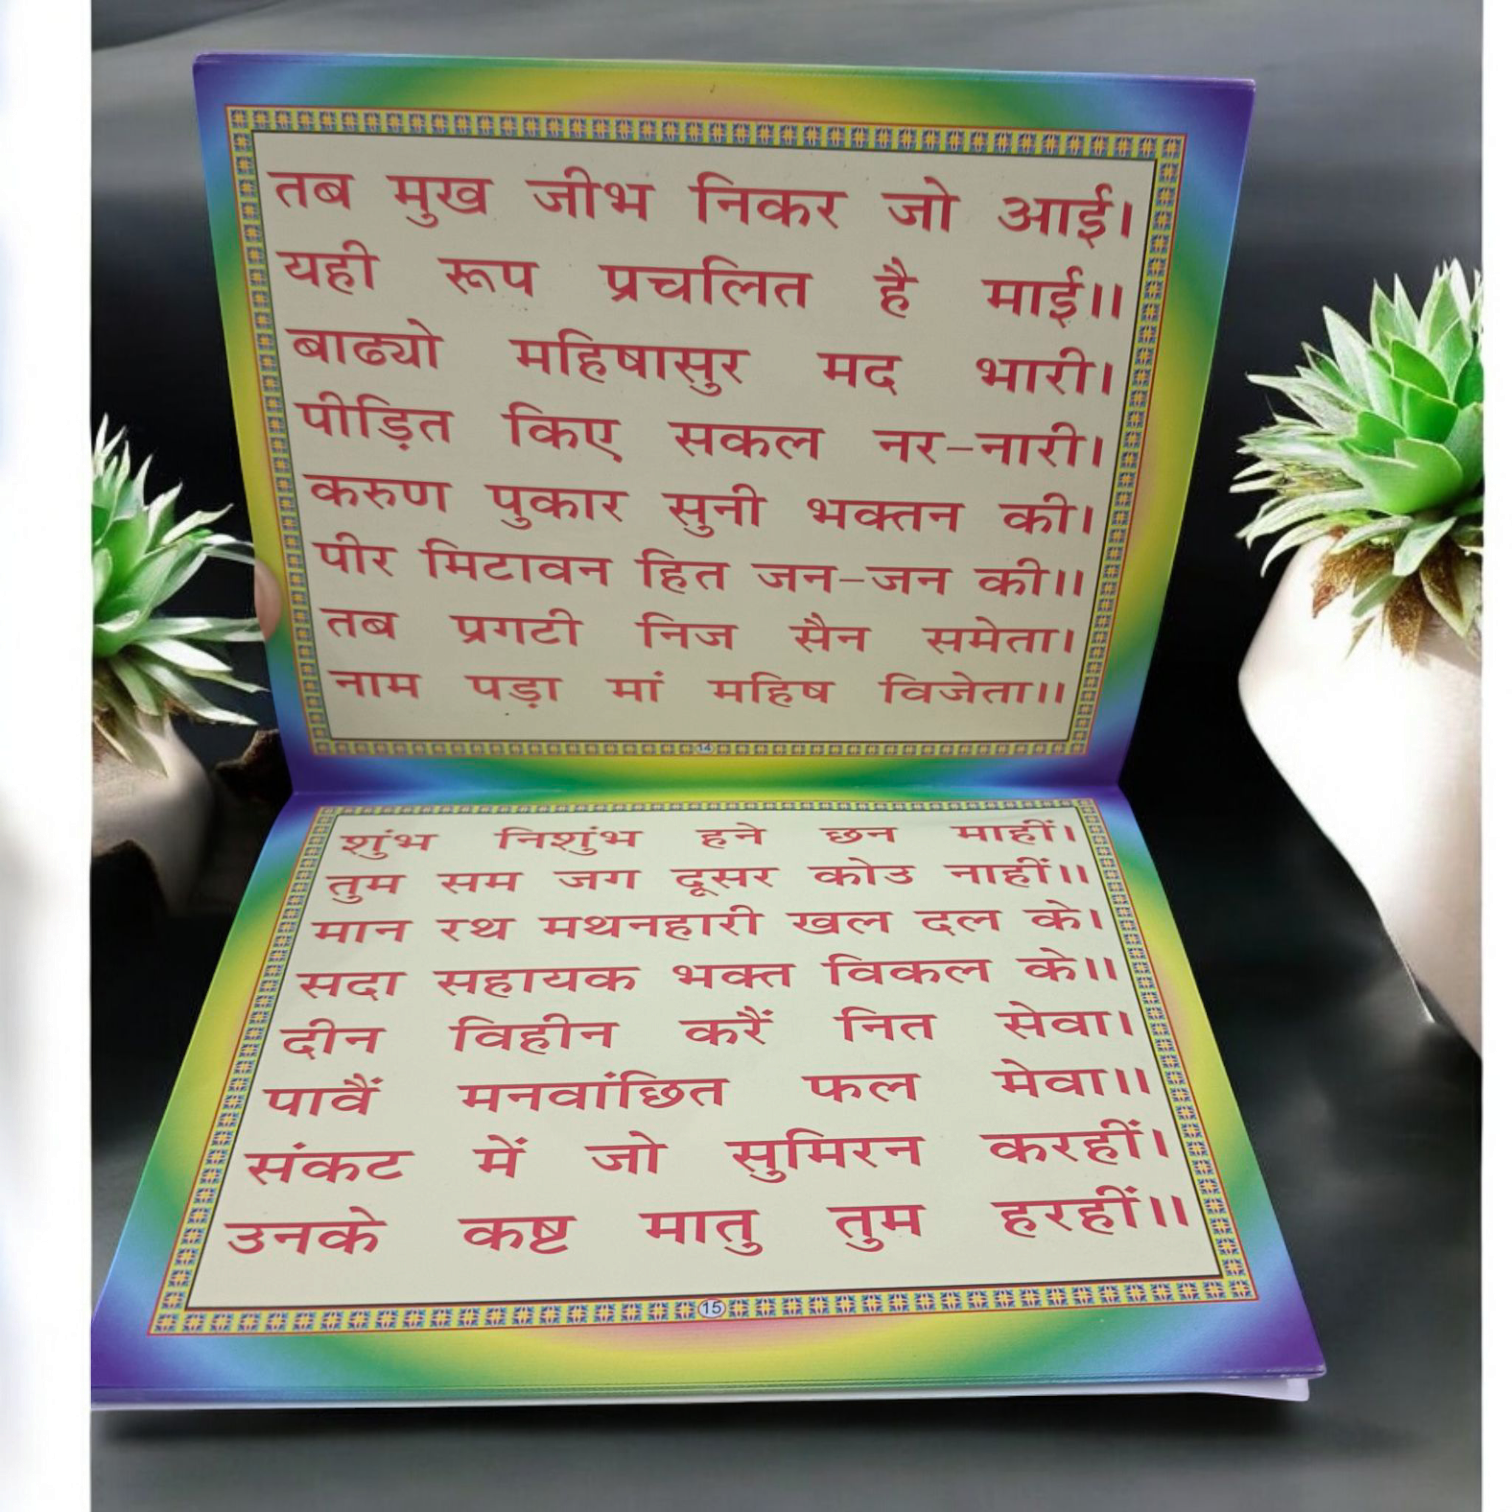 तब मुख जीभ निकर जो आई।
यही रूप प्रचलित है माई।।
बाढ्यो महिषासुर मद भारी।
पीड़ित किए सकल नर-नारी।
करुण पुकार सुनी भक्तन की।
पीर मिटावन हित जन-जन की।।
तब प्रगटी निज सैन समेता।
नाम पड़ा मां महिष विजेता।।
14
शुंभ निशुंभ हने छन माहीं।
तुम सम जग दूसर कोउ नाहीं।।
मान रथ मथनहारी खल दल के।
सदा सहायक भक्त विकल के।।
दीन विहीन करैं नित सेवा।
पावैं मनवांछित फल मेवा।।
संकट में जो सुमिरन करहीं।
उनके कष्ट मातु तुम हरहीं।।
15